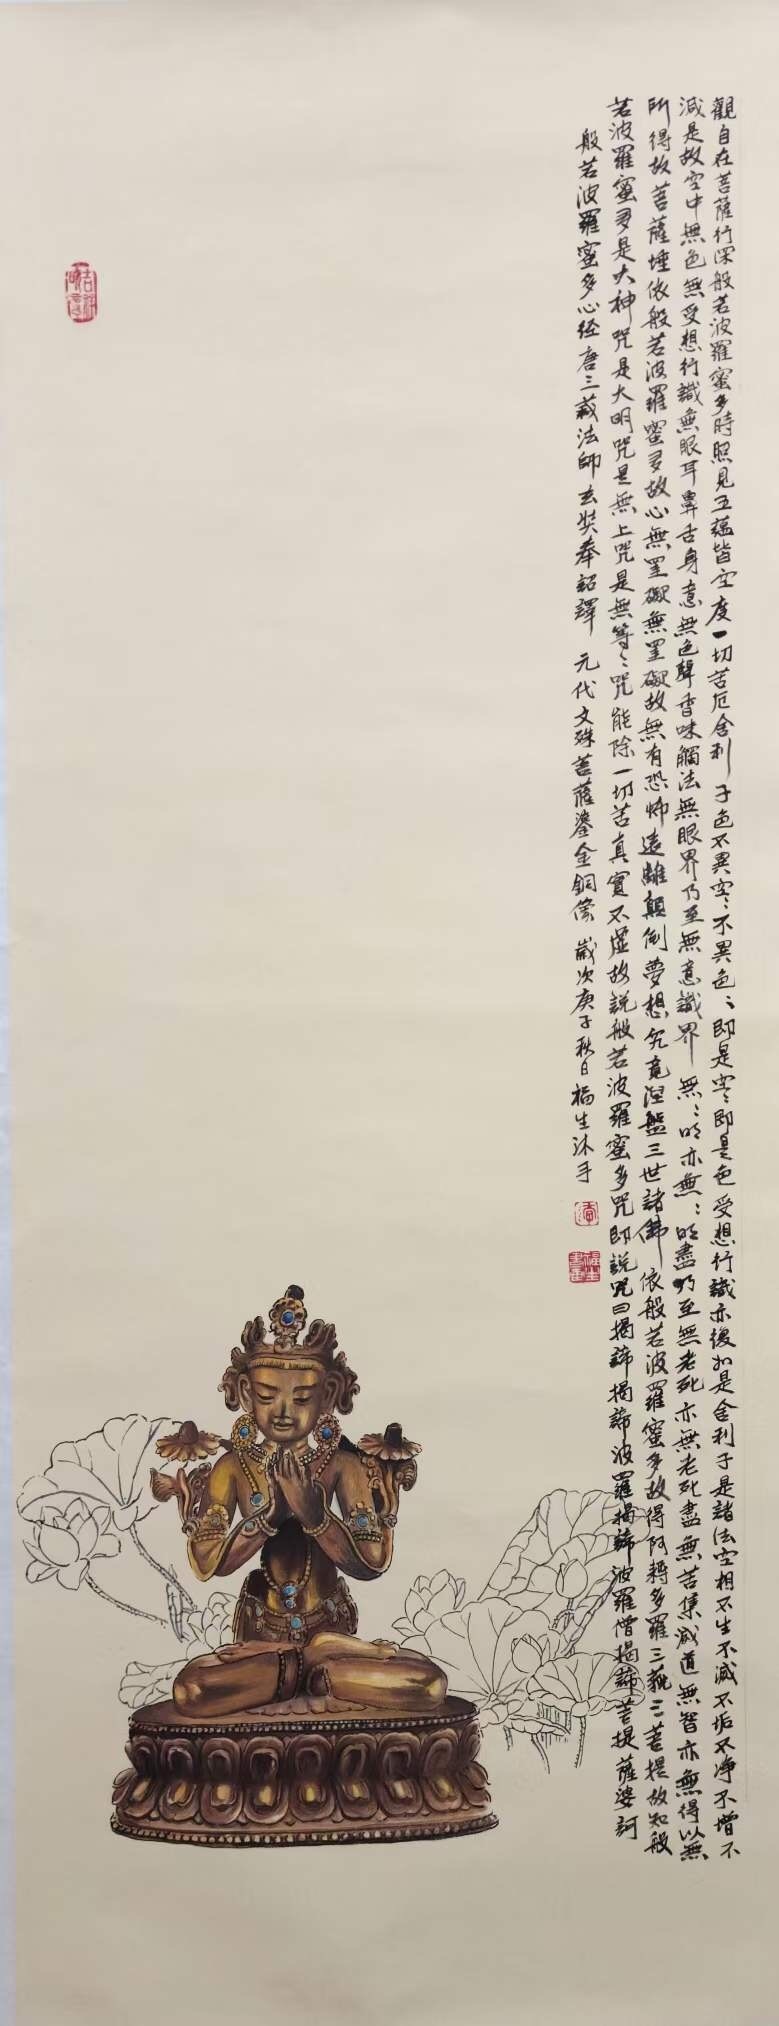 觀自在菩薩行深般若波羅蜜多時照見五蘊皆空度一切苦厄舍利子色不異空〻不異色〻即是空〻即是色受想行識亦復如是舍利子是諸法空相不生不滅不垢不净不增不
減是故空中無色無受想行識無眼耳鼻舌身意無色聲香味觸法無眼界乃至無意識界無〻明亦無〻明盡乃至無老死亦無老死盡無苦集滅道無智亦無得以無
所得故菩薩埵依般若波羅蜜多故心無罣礙無罣礙故無有恐怖遠離顛倒夢想究竟涅盤三世諸佛依般若波羅蜜多故得阿耨多羅三藐三菩提故知般
若波羅蜜多是大神咒是大明咒是無上咒是無等〻咒能除一切苦真實不虛故説般若波羅蜜多咒即説咒曰揭諦揭諦波羅揭諦波羅僧揭諦菩提薩婆訶
般若波羅蜜多心经唐三藏法師玄奘奉詔譯 元代文殊菩薩鎏金銅像 歲次庚子秋日福生沐手
李